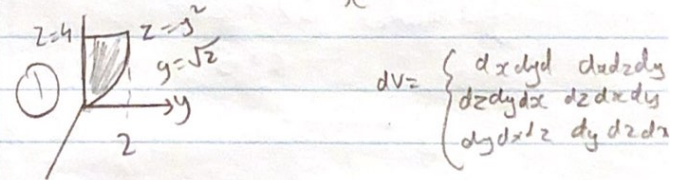 z=4 z=y²
y=√z
① dV= { dxdyd dxdzdy
dzdydx dzdxdy
y
dydxdz dydzdx
2